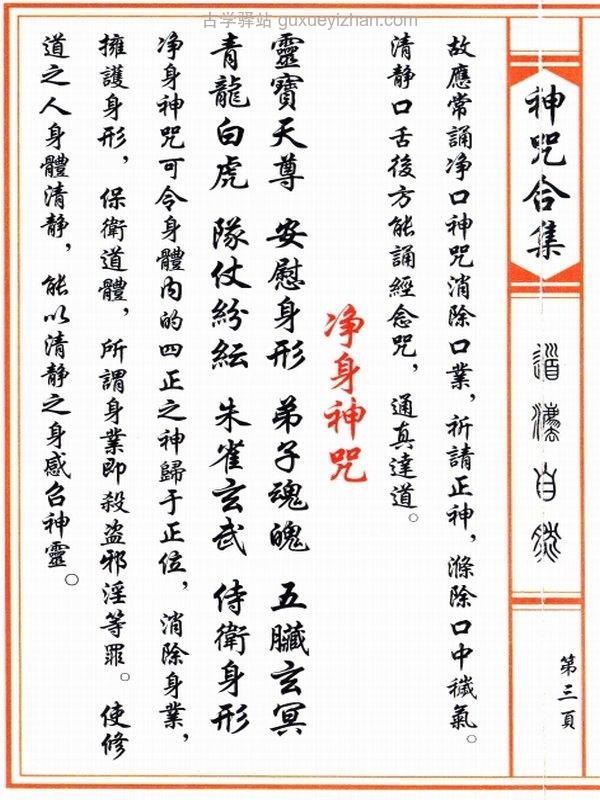 古学驿站 guxueyizhan.com
神咒合集
道法自然
第三頁
故應常誦净口神咒消除口業，祈請正神，滌除口中穢氣。
清静口舌後方能誦經念咒，通真達道。
净身神咒
靈寶天尊 安慰身形 弟子魂魄 五臟玄冥
青龍白虎 隊仗紛紜 朱雀玄武 侍衛身形
净身神咒可令身體内的四正之神歸于正位，消除身業，
擁護身形，保衛道體，所謂身業即殺盗邪淫等罪。使修
道之人身體清静，能以清静之身感召神靈。